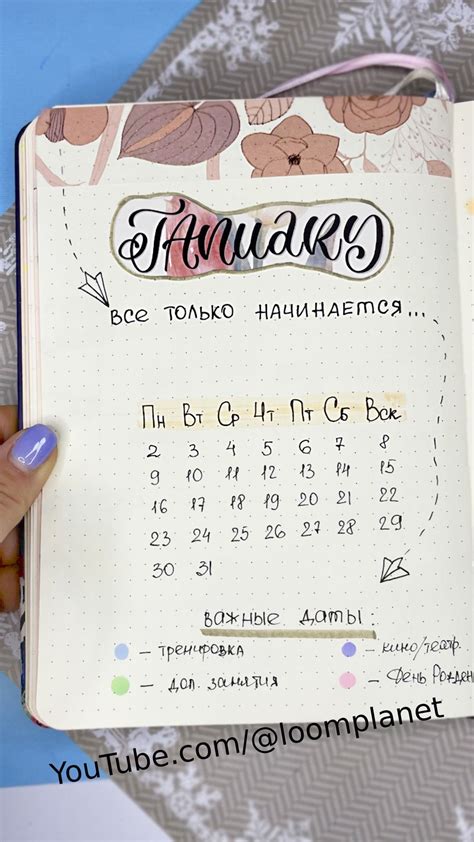 JANUARY
ВСЕ ТОЛЬКО НАЧИНАЕТСЯ...
Пн Вт Ср Чт Пт Сб Вск
2 3 4 5 6 7 8
9 10 11 12 13 14 15
16 17 18 19 20 21 22
23 24 25 26 27 28 29
30 31
важные даты:
– тренировка
– кино/театр.
– доп. занятия
– День Рожден
YouTube.com/@loomplanet